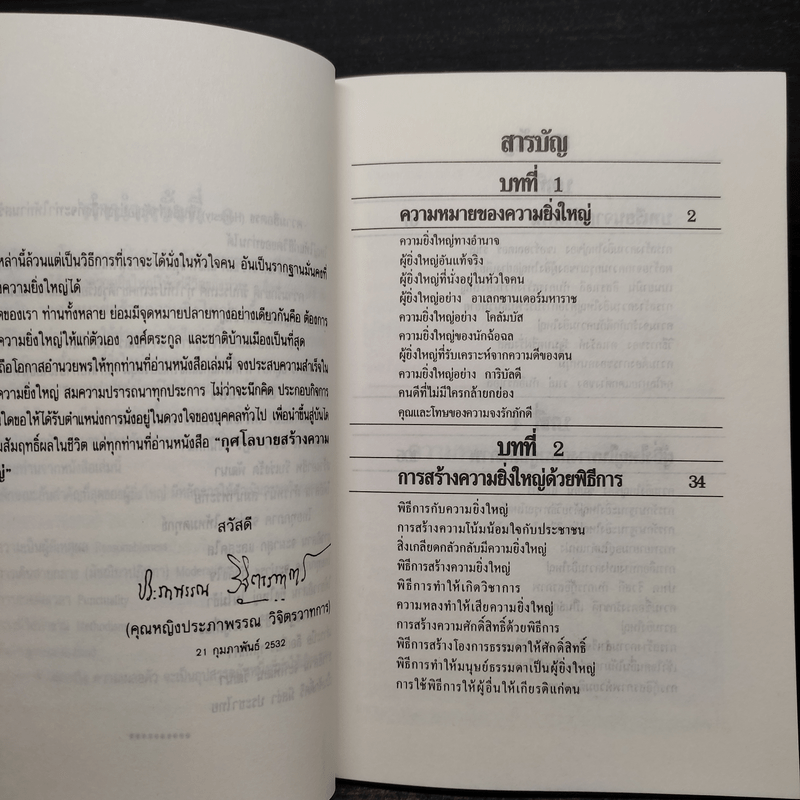 หล่านี้ล้วนแต่เป็นวิธีการที่เราจะได้นั่งในหัวใจคน อันเป็นรากฐานมั่นคงที่
งความยิ่งใหญ่ได้
ดของเรา ท่านทั้งหลาย ย่อมมีจุดหมายปลายทางอย่างเดียวกันคือ ต้องการ
ความยิ่งใหญ่ให้แก่ตัวเอง วงศ์ตระกูล และชาติบ้านเมืองเป็นที่สุด
ถือโอกาสอำนวยพรให้ทุกท่านที่อ่านหนังสือเล่มนี้ จงประสบความสำเร็จใน
ความยิ่งใหญ่ สมความปรารถนาทุกประการ ไม่ว่าจะนึกคิด ประกอบกิจการ
ใดขอให้ได้รับตำแหน่งการนั่งอยู่ในดวงใจของบุคคลทั่วไป เพื่อนำขึ้นสู่บันได
มสัมฤทธิ์ผลในชีวิต แด่ทุกท่านที่อ่านหนังสือ "กุศโลบายสร้างความ
ญ่"
สวัสดี
ประภาพรรณ วิจิตรวาทการ
(คุณหญิงประภาพรรณ วิจิตรวาทการ)
21 กุมภาพันธ์ 2532
สารบัญ
บทที่ 1
ความหมายของความยิ่งใหญ่ 2
ความยิ่งใหญ่ทางอำนาจ
ผู้ยิ่งใหญ่อันแท้จริง
ผู้ยิ่งใหญ่ที่นั่งอยู่ในหัวใจคน
ผู้ยิ่งใหญ่อย่าง อาเลกซานเดอร์มหาราช
ความยิ่งใหญ่อย่าง โคลัมบัส
ความยิ่งใหญ่ของนักฉ้อฉล
ผู้ยิ่งใหญ่ที่รับเคราะห์จากความดีของตน
ความยิ่งใหญ่อย่าง การิบัลดี
คนดีที่ไม่มีใครกล้ายกย่อง
คุณและโทษของความจงรักภักดี
บทที่ 2
การสร้างความยิ่งใหญ่ด้วยพิธีการ 34
พิธีการกับความยิ่งใหญ่
การสร้างความโน้มน้อมใจกับประชาชน
สิ่งเกลียดกลัวกลับมีความยิ่งใหญ่
พิธีการสร้างความยิ่งใหญ่
พิธีการทำให้เกิดวิชาการ
ความหลงทำให้เสียความยิ่งใหญ่
การสร้างความศักดิ์สิทธิ์ด้วยพิธีการ
พิธีการสร้างโองการธรรมดาให้ศักดิ์สิทธิ์
พิธีการทำให้มนุษย์ธรรมดาเป็นผู้ยิ่งใหญ่
การใช้พิธีการให้ผู้อื่นให้เกียรติแก่ตน